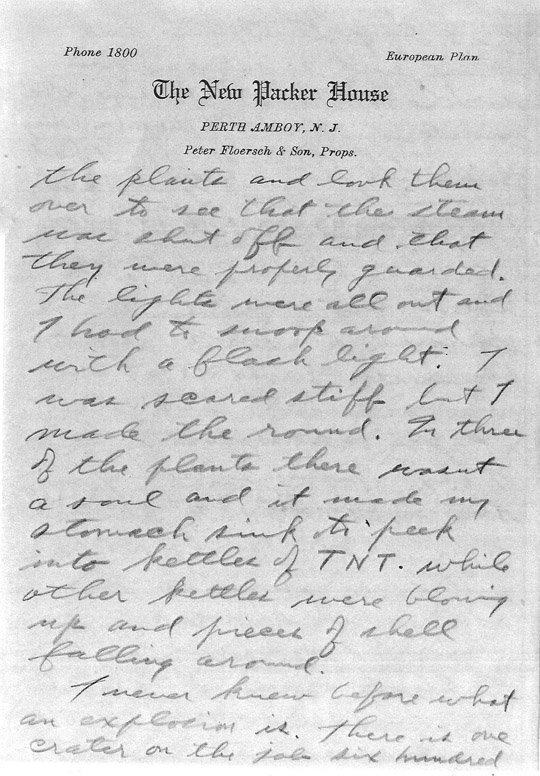 Phone 1800
European Plan
The New Packer House
PERTH AMBOY, N. J.
Peter Floersch & Son, Props.
the plants and look them
over to see that the steam
was shut off and that
they were properly guarded.
The lights were all out and
I had to snoop around
with a flash light. I
was scared stiff but I
made the round. In three
of the plants there wasnt
a soul and it made my
stomach sink to peek
into kettles of TNT. while
other kettles were blowing
up and pieces of shell
falling around.
I never knew before what
an explosion is. There is one
crater on the job six hundred